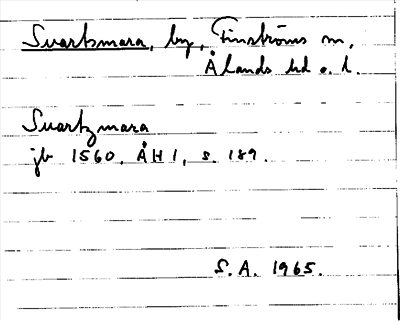 Svartsmara, by, Finströms sn,
Ålands hd o. l.
Svartzmara
jb 1560. ÅH 1, s. 189.
S.A. 1965.